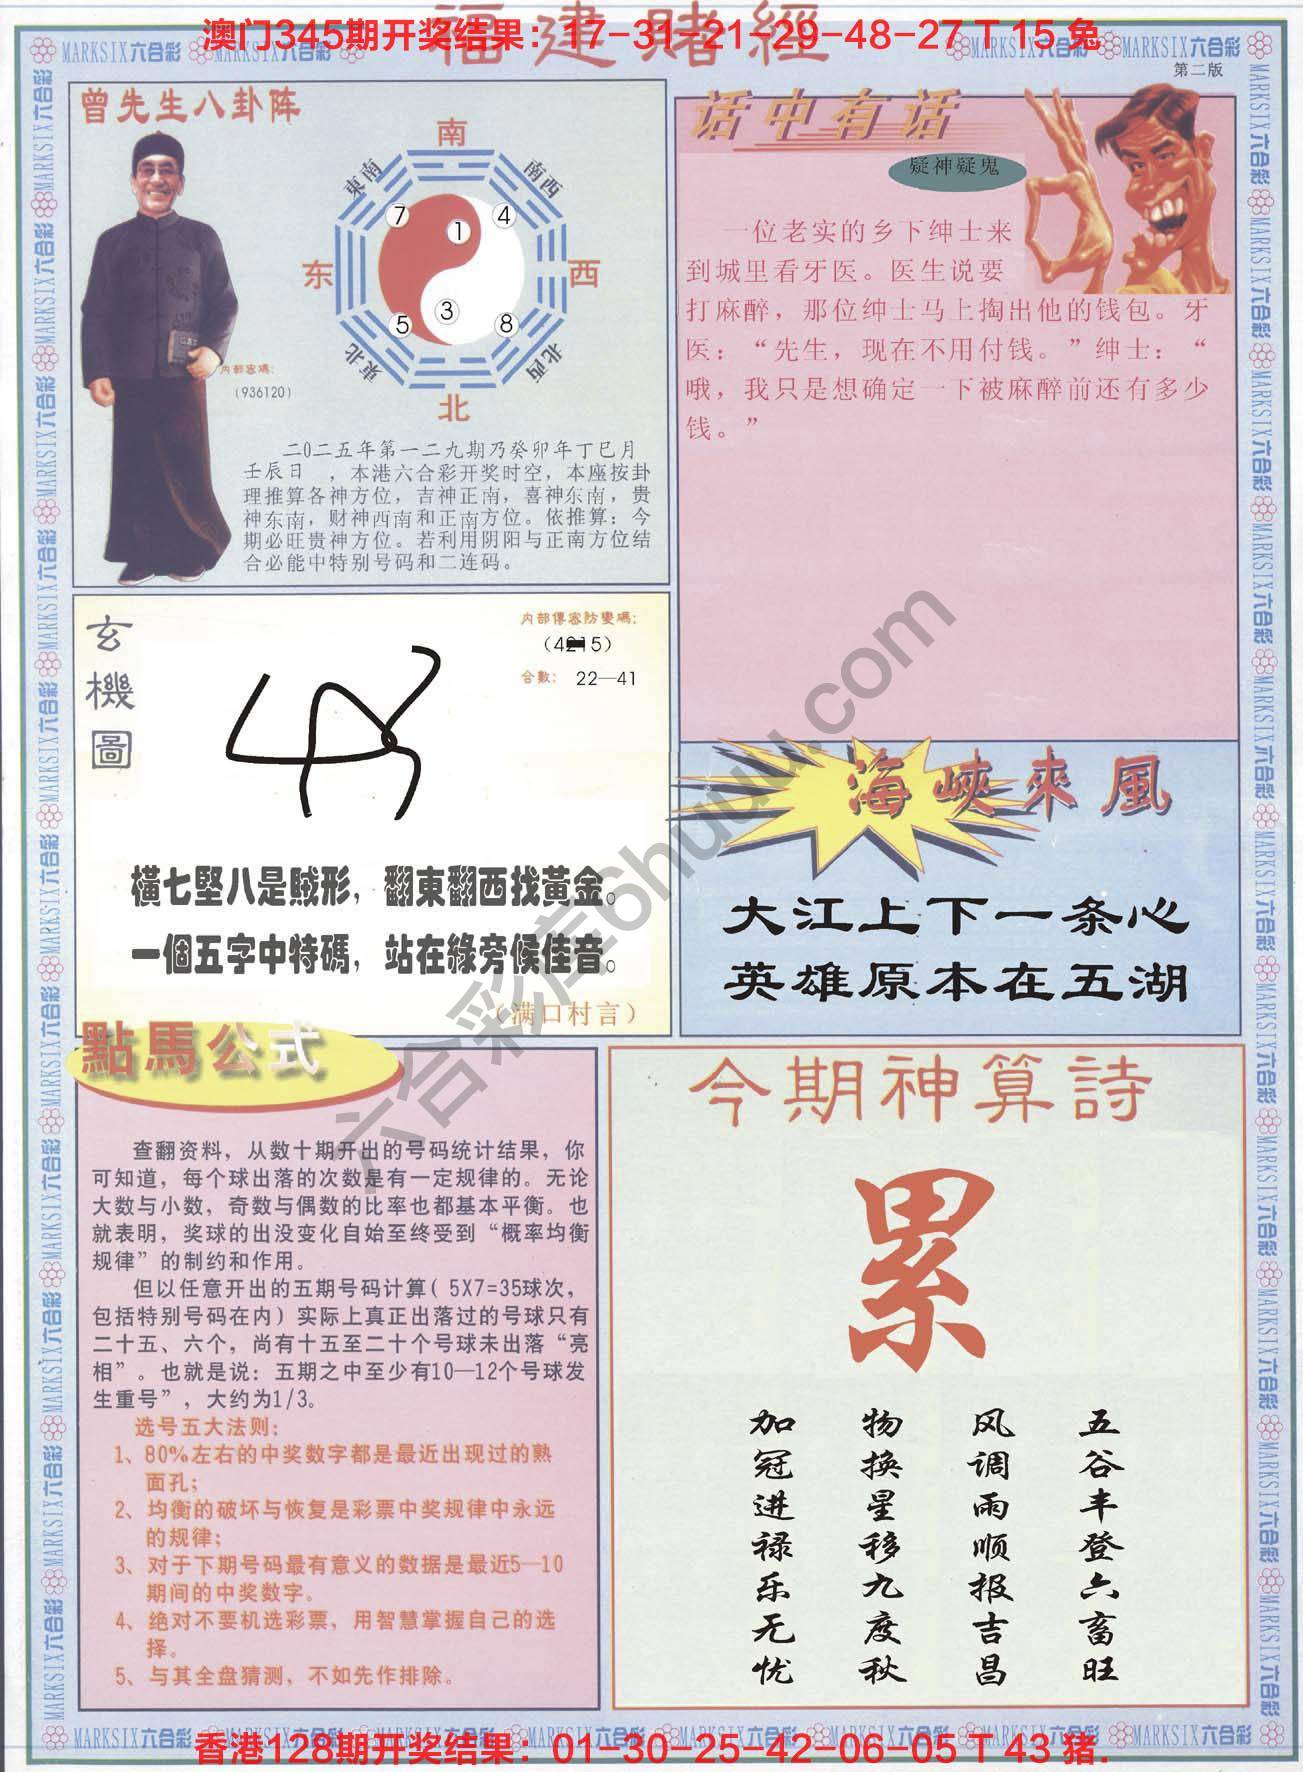 福建賭經
澳门345期开奖结果：17-31-21-29-48-27 T 15 兔
MARKSIX六合彩
第二版
曾先生八卦阵
南
東南
南西
7
1
4
东
西
5
3
8
東北
北西
北
内部密碼：
(936120)
二0二五年第一二九期乃癸卯年丁巳月
壬辰日 ，本港六合彩开奖时空，本座按卦
理推算各神方位，吉神正南，喜神东南，贵
神东南，财神西南和正南方位。依推算：今
期必旺贵神方位。若利用阴阳与正南方位结
合必能中特别号码和二连码。
话中有话
疑神疑鬼
一位老实的乡下绅士来
到城里看牙医。医生说要
打麻醉，那位绅士马上掏出他的钱包。牙
医：“先生，现在不用付钱。”绅士：“
哦，我只是想确定一下被麻醉前还有多少
钱。”
玄機圖
内部傳密防變碼：
合數： 22—41
橫七堅八是賊形，翻東翻西找黃金。
一個五字中特碼，站在綠旁候佳音。
（满口村言）
海峽來風
大江上下一条心
英雄原本在五湖
點馬公式
查翻资料，从数十期开出的号码统计结果，你
可知道，每个球出落的次数是有一定规律的。无论
大数与小数，奇数与偶数的比率也都基本平衡。也
就表明，奖球的出没变化自始至终受到“概率均衡
规律”的制约和作用。
但以任意开出的五期号码计算( 5X7=35球次，
包括特别号码在内）实际上真正出落过的号球只有
二十五、六个，尚有十五至二十个号球未出落“亮
相”。也就是说：五期之中至少有10—12个号球发
生重号”，大约为1/3。
选号五大法则：
1、80%左右的中奖数字都是最近出现过的熟
面孔；
2、均衡的破坏与恢复是彩票中奖规律中永远
的规律；
3、对于下期号码最有意义的数据是最近5—10
期间的中奖数字。
4、绝对不要机选彩票，用智慧掌握自己的选
择。
5、与其全盘猜测，不如先作排除。
今期神算詩
累
五谷丰登六畜旺
风调雨顺报吉昌
物换星移九度秋
加冠进禄乐无忧
六合彩库6huuu.com
香港128期开奖结果：01-30-25-42-06-05 T 43 猪.